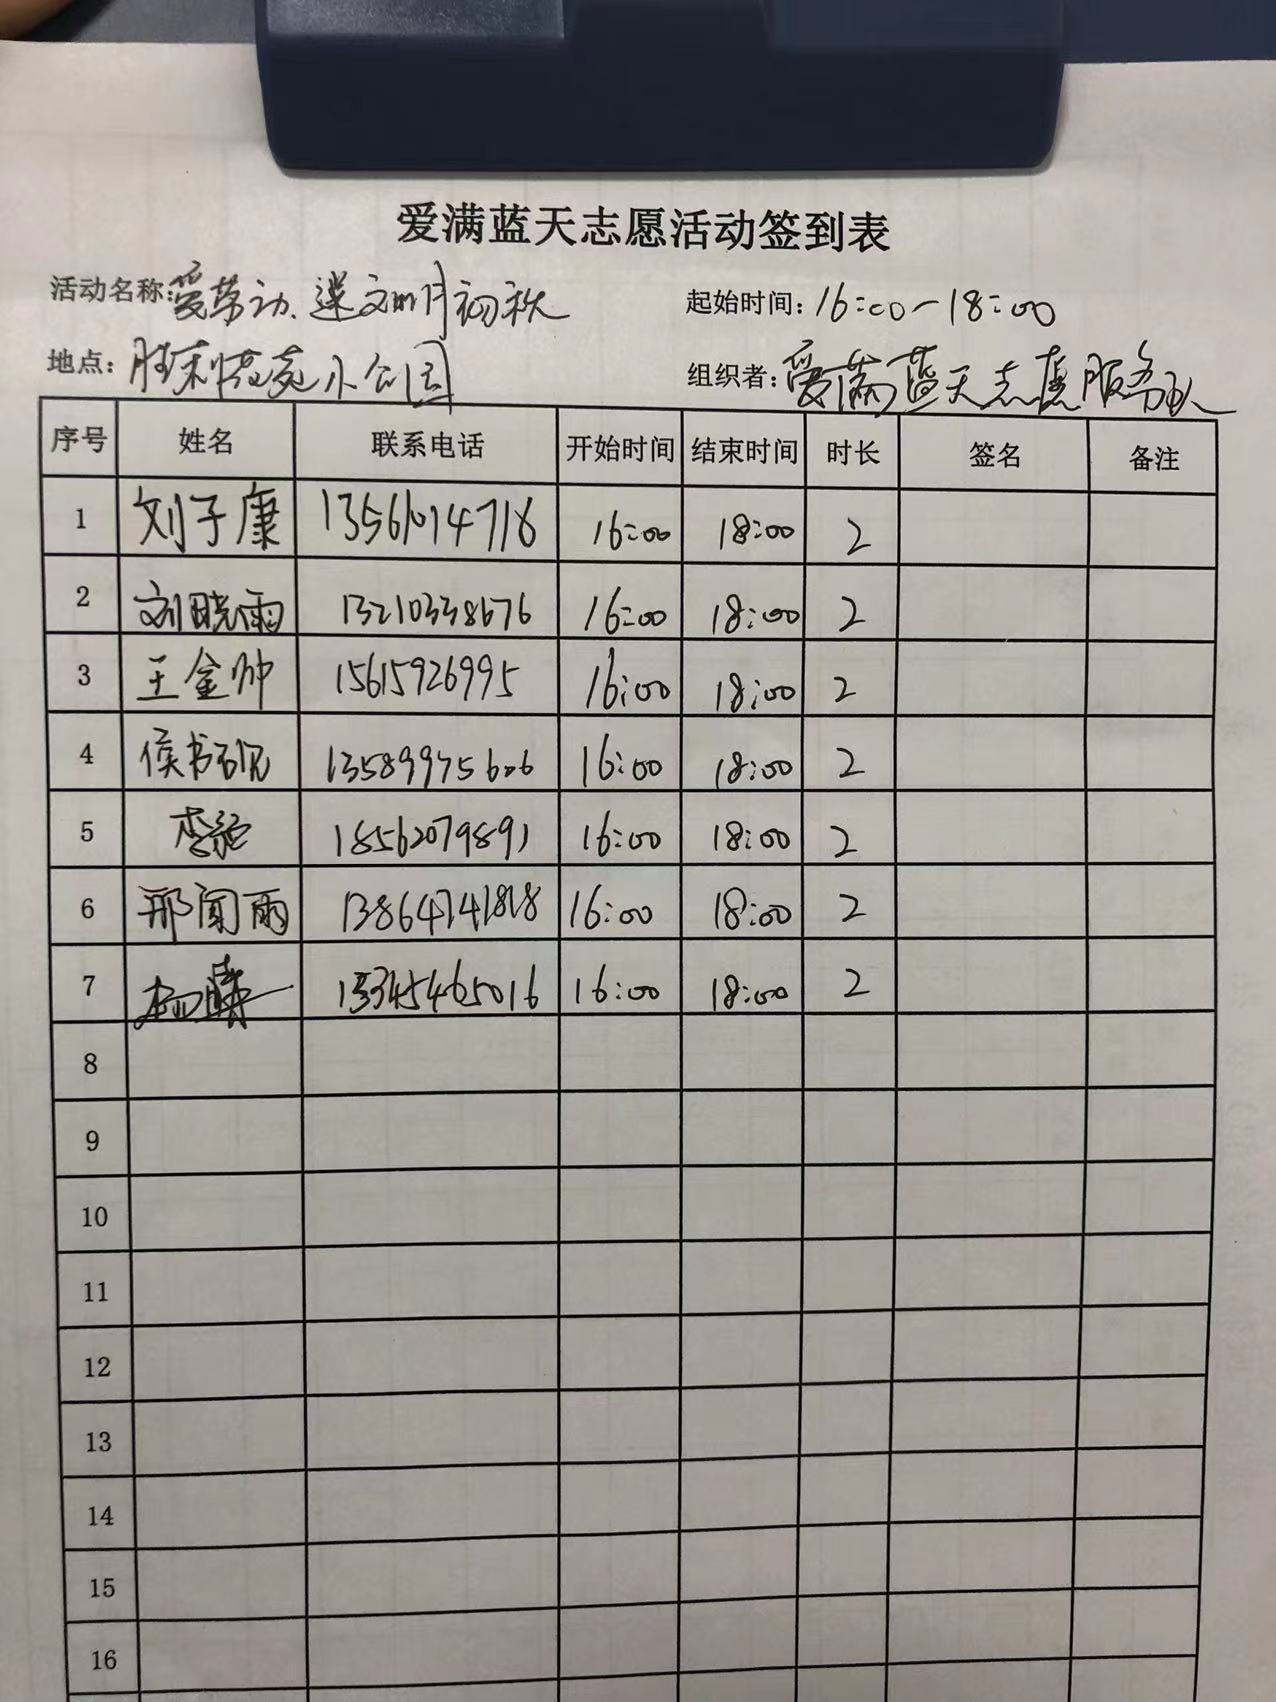 爱满蓝天志愿活动签到表
活动名称:爱劳动、送文明月初秋
起始时间:16:00-18:00
地点:胜利花苑小公园
组织者:爱满蓝天志愿服务队
序号 姓名 联系电话 开始时间 结束时间 时长 签名 备注
1 刘子康 13561014718 16:00 18:00 2
2 刘晓雨 13210338676 16:00 18:00 2
3 王金帅 15615926995 16:00 18:00 2
4 侯书砚 13589975606 16:00 18:00 2
5 李 18562079891 16:00 18:00 2
6 邢闻雨 13864741818 16:00 18:00 2
7 杨 15345465016 16:00 18:00 2
8
9
10
11
12
13
14
15
16